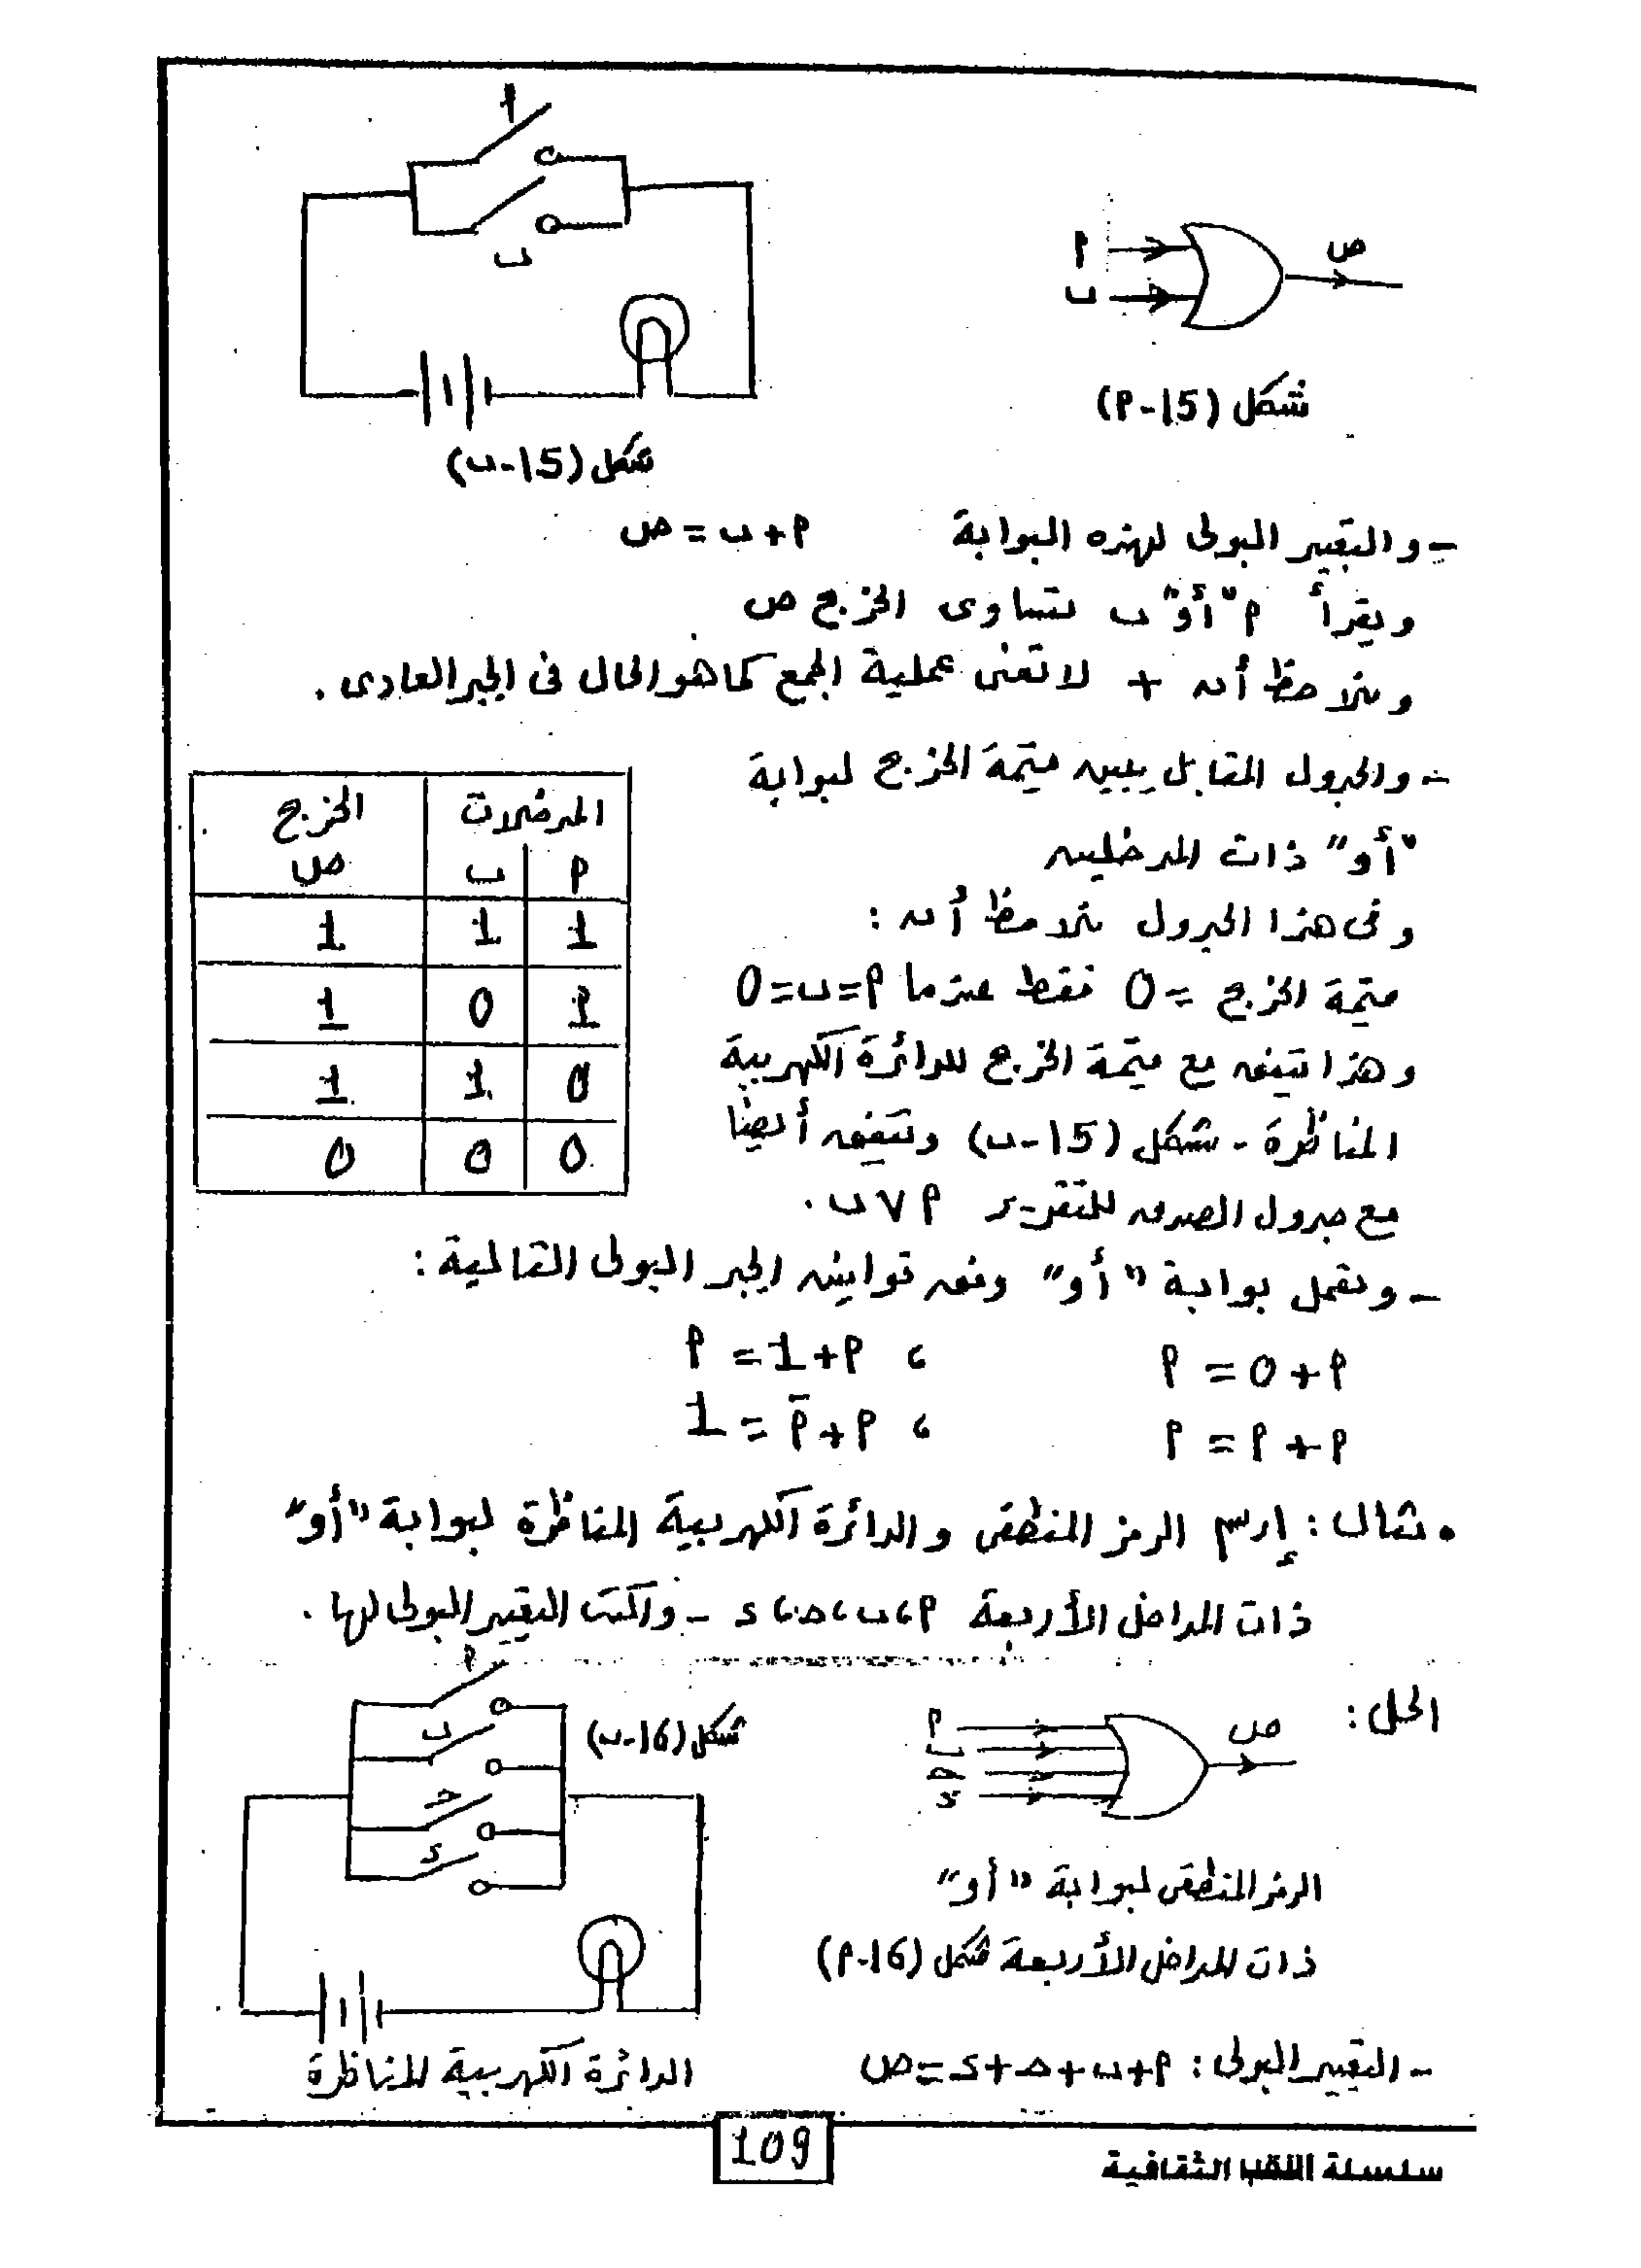 أ
ب
أ
ب
ص
شكل (15-أ)
شكل (15-ب)
- والتعبير البولى لهذه البوابة أ+ب=ص
ويقرأ أ "أو" ب تساوى الخرج ص
ونلاحظ أن + لا تعنى عملية الجمع كما هو الحال فى الجبر العادى .
- والجدول المقابل يبين قيمة الخرج لبوابة
"أو" ذات المدخلين
وفى هذا الجدول نلاحظ أن :
قيمة الخرج = 0 فقط عندما أ=ب=0
وهذا يتفق مع قيمة الخرج للدائرة الكهربية
المناظرة - شكل (15-ب) وتتفق أيضا
مع جدول الصدق للتقرير أ ∨ ب .
المدخلات الخرج
أ ب ص
1 1 1
1 0 1
0 1 1
0 0 0
- وتعمل بوابة "أو" وفق قوانين الجبر البولى التالية :
أ+0 = أ ، أ+1= أ
أ+أ = أ ، أ+أ̄ = 1
• مثال : إرسم الرمز المنطقى والدائرة الكهربية المناظرة لبوابة "أو"
ذات المداخل الأربعة أ ، ب ، ح ، د - واكتب التعبير البولى لها .
الحل :
أ
ب
ح
د
ص
شكل (16-ب)
أ
ب
ح
د
الرمز المنطقى لبوابة "أو"
ذات المداخل الأربعة شكل (16-أ)
- التعبير البولى : أ+ب+ح+د=ص
الدائرة الكهربية المناظرة
109
سلسلة النقب الثقافية